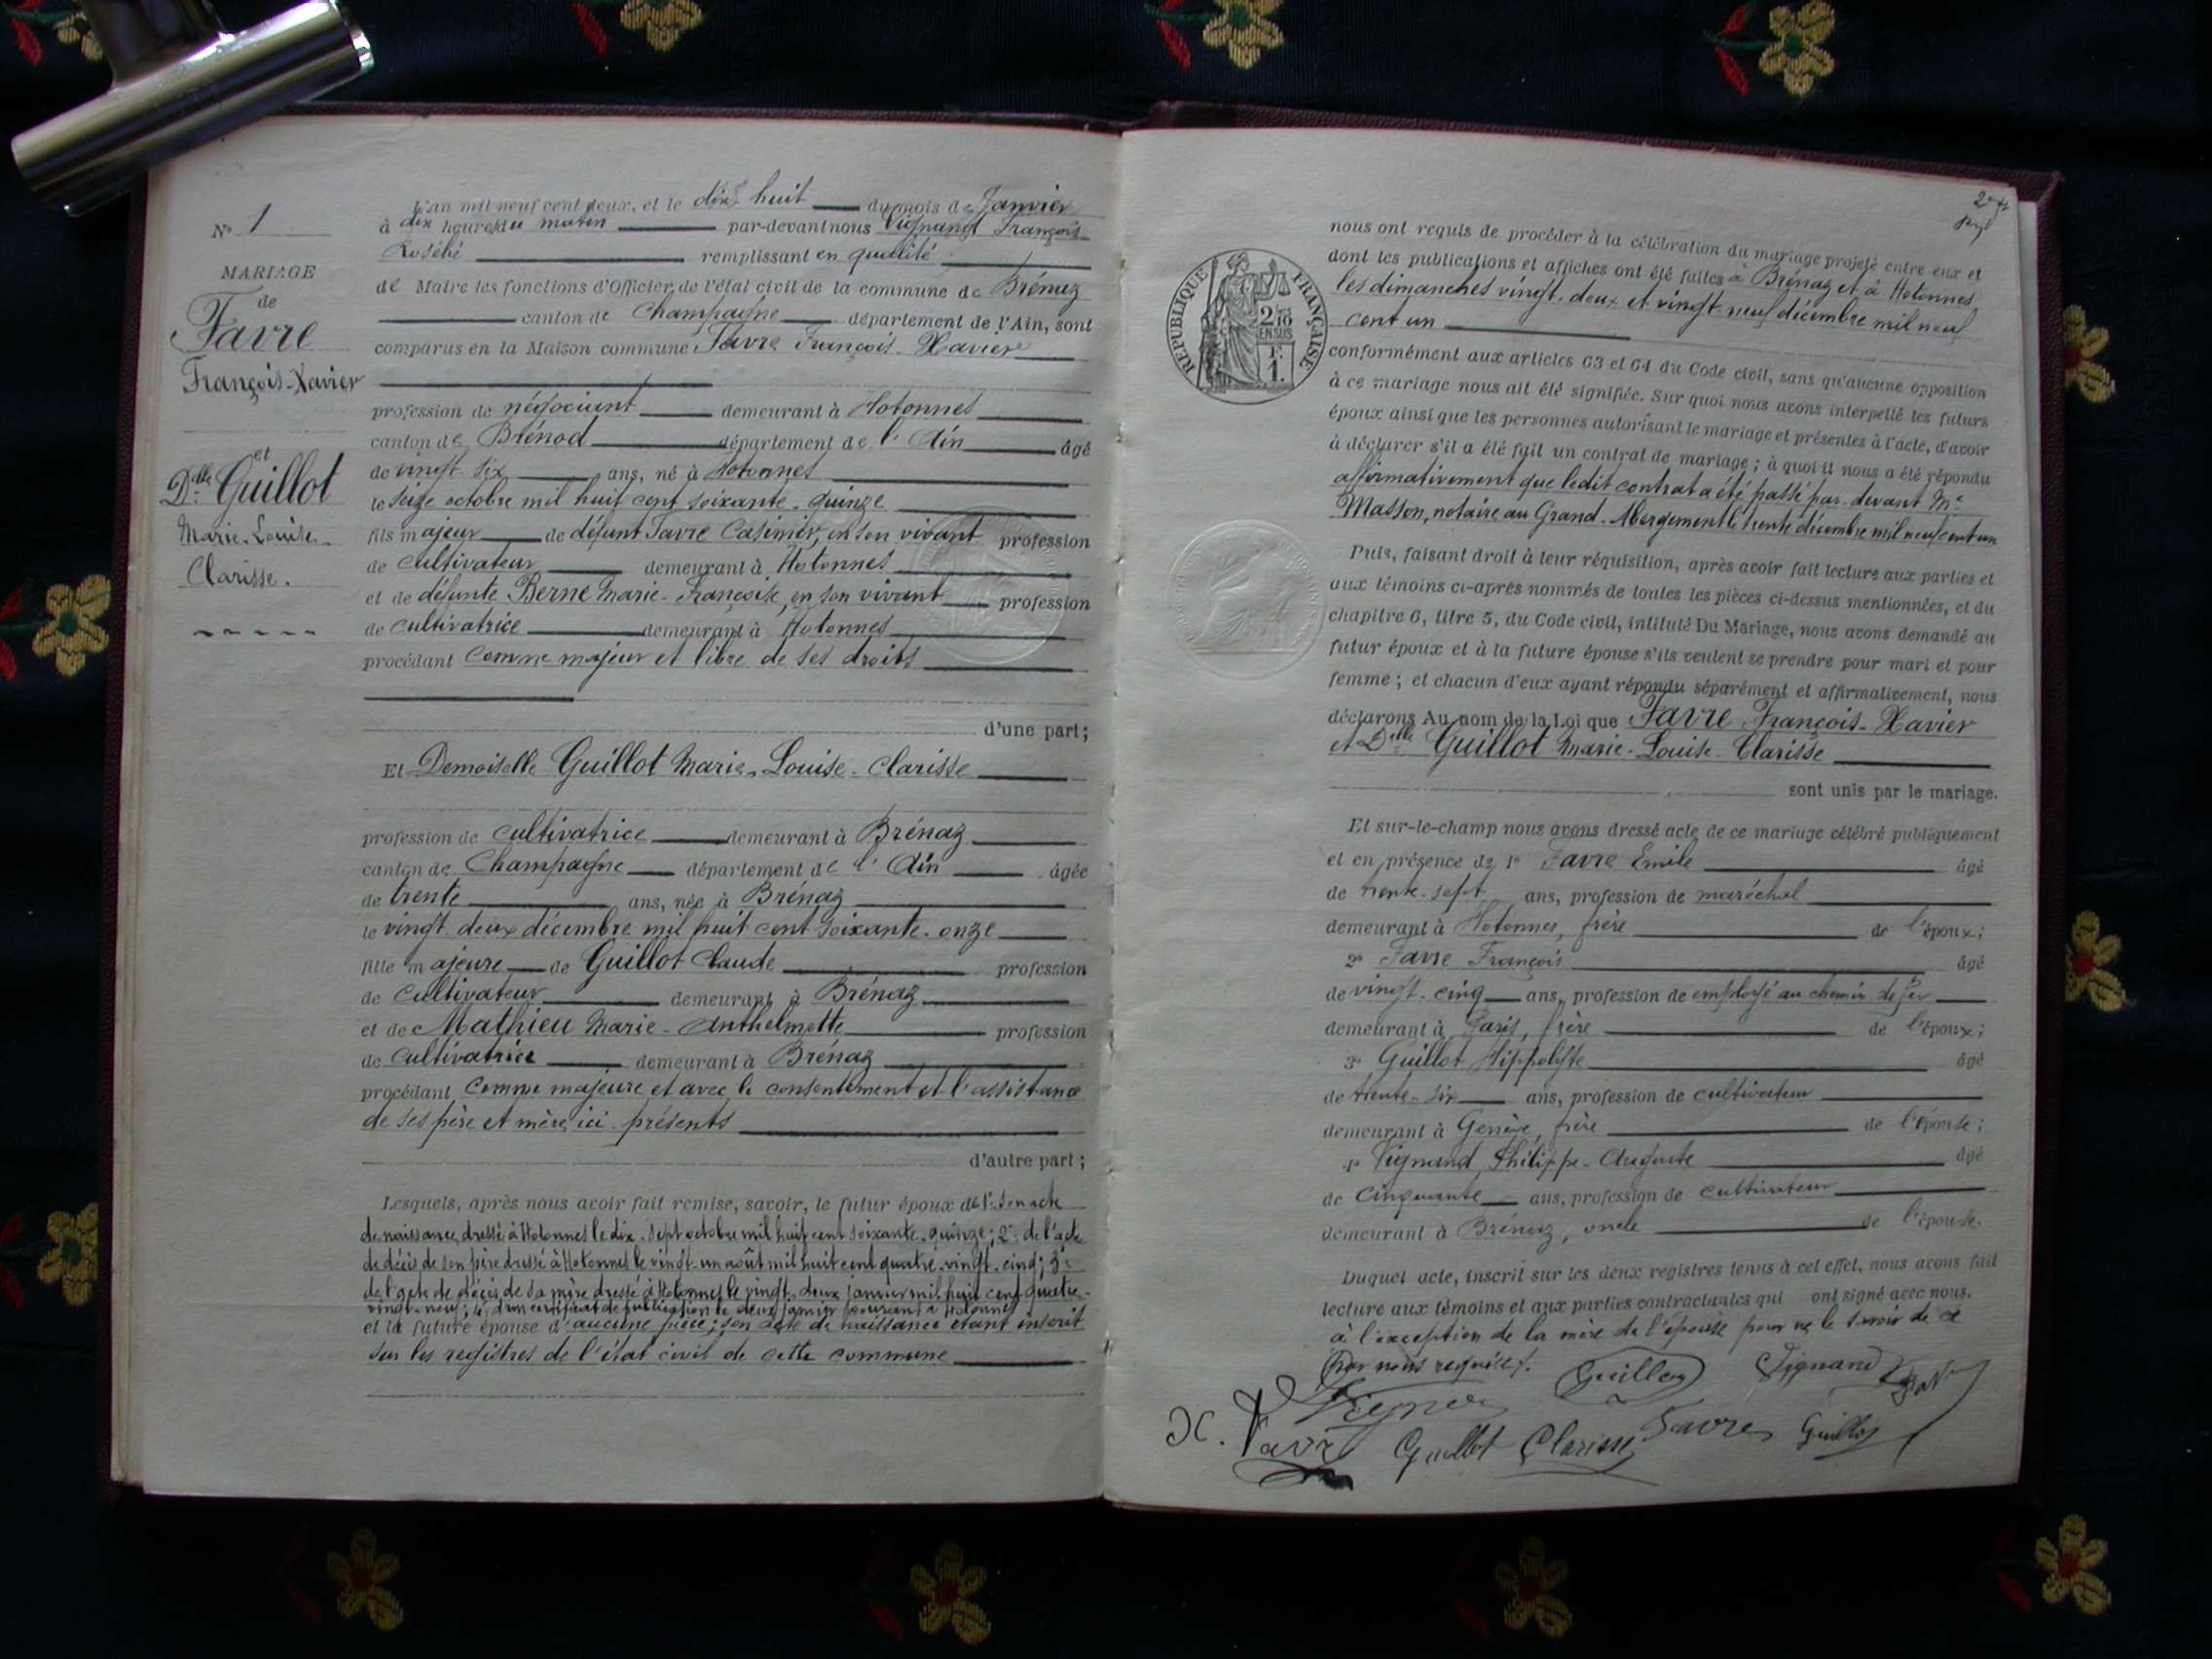 N° 1
MARIAGE
de
Favre
François-Xavier
et
Dlle Guillot
Marie-Louise-
Clarisse.
L'an mil neuf cent deux, et le dix-huit du mois de Janvier
à dix heures du matin par-devant nous Vignand François
remplissant en qualité
de Maire les fonctions d'Officier de l'état civil de la commune de Brénaz
canton de Champagne département de l'Ain, sont
comparus en la Maison commune Favre François-Xavier
profession de négociant demeurant à Hotonnes
canton de Brénod département de l'Ain âgé
de vingt-six ans, né à Hotonnes
le seize octobre mil huit cent soixante-quinze
fils majeur de défunt Favre Casimir, en son vivant profession
de cultivateur demeurant à Hotonnes
et de défunte Berne Marie-Françoise, en son vivant profession
de cultivatrice demeurant à Hotonnes
procédant comme majeur et libre de ses droits
d'une part;
Et Demoiselle Guillot Marie-Louise-Clarisse
profession de cultivatrice demeurant à Brénaz
canton de Champagne département de l'Ain âgée
de trente ans, née à Brénaz
le vingt-deux décembre mil huit cent soixante-onze
fille majeure de Guillot Claude profession
de cultivateur demeurant à Brénaz
et de Mathieu Marie-Anthelmette profession
de cultivatrice demeurant à Brénaz
procédant comme majeure et avec le consentement et l'assistance
de ses père et mère ici présents
d'autre part;
Lesquels, après nous avoir fait remise, savoir, le futur époux de 1° son acte
de naissance dressé à Hotonnes le dix-sept octobre mil huit cent soixante-quinze; 2° de l'acte
de décès de son père dressé à Hotonnes le vingt-un août mil huit cent quatre-vingt-cinq; 3°
de l'acte de décès de sa mère dressé à Hotonnes le vingt-deux janvier mil huit cent quatre-
vingt-neuf; 4° d'un certificat de publication le deux janvier courant à Hotonnes
et la future épouse d'aucune pièce; son acte de naissance étant inscrit
sur les registres de l'état civil de cette commune
nous ont requis de procéder à la célébration du mariage projeté entre eux et
dont les publications et affiches ont été faites à Brénaz et à Hotonnes
les dimanches vingt-deux et vingt neuf décembre mil neuf
cent un
RÉPUBLIQUE FRANÇAISE
2/10 EN SUS
1F.
conformément aux articles 63 et 64 du Code civil, sans qu'aucune opposition
à ce mariage nous ait été signifiée. Sur quoi nous avons interpellé les futurs
époux ainsi que les personnes autorisant le mariage et présentes à l'acte, d'avoir
à déclarer s'il a été fait un contrat de mariage; à quoi il nous a été répondu
affirmativement que ledit contrat a été passé par-devant Me
Masson, notaire au Grand-Abergement le trente décembre mil neuf cent un
Puis, faisant droit à leur réquisition, après avoir fait lecture aux parties et
aux témoins ci-après nommés de toutes les pièces ci-dessus mentionnées, et du
chapitre 6, titre 5, du Code civil, intitulé Du Mariage, nous avons demandé au
futur époux et à la future épouse s'ils veulent se prendre pour mari et pour
femme; et chacun d'eux ayant répondu séparément et affirmativement, nous
déclarons Au nom de la Loi que Favre François-Xavier
et Dlle Guillot Marie-Louise-Clarisse
sont unis par le mariage.
Et sur-le-champ nous avons dressé acte de ce mariage célébré publiquement
et en présence de 1° Favre Emile âgé
de trente-sept ans, profession de maréchal
demeurant à Hotonnes, frère de l'époux;
2° Favre François âgé
de vingt-cinq ans, profession de employé au chemin de fer
demeurant à Paris, frère de l'époux;
3° Guillot Hippolyte âgé
de trente-six ans, profession de cultivateur
demeurant à Genève, frère de l'épouse;
4° Vignand Philippe-Auguste âgé
de cinquante ans, profession de cultivateur
demeurant à Brénaz, oncle de l'épouse.
Duquel acte, inscrit sur les deux registres tenus à cet effet, nous avons fait
lecture aux témoins et aux parties contractantes qui ont signé avec nous.
à l'exception de la mère de l'épouse pour ne le savoir de ce
par nous requise.
Guillot Vignand
X. Favre Guillot Clarisse Favre Guillot